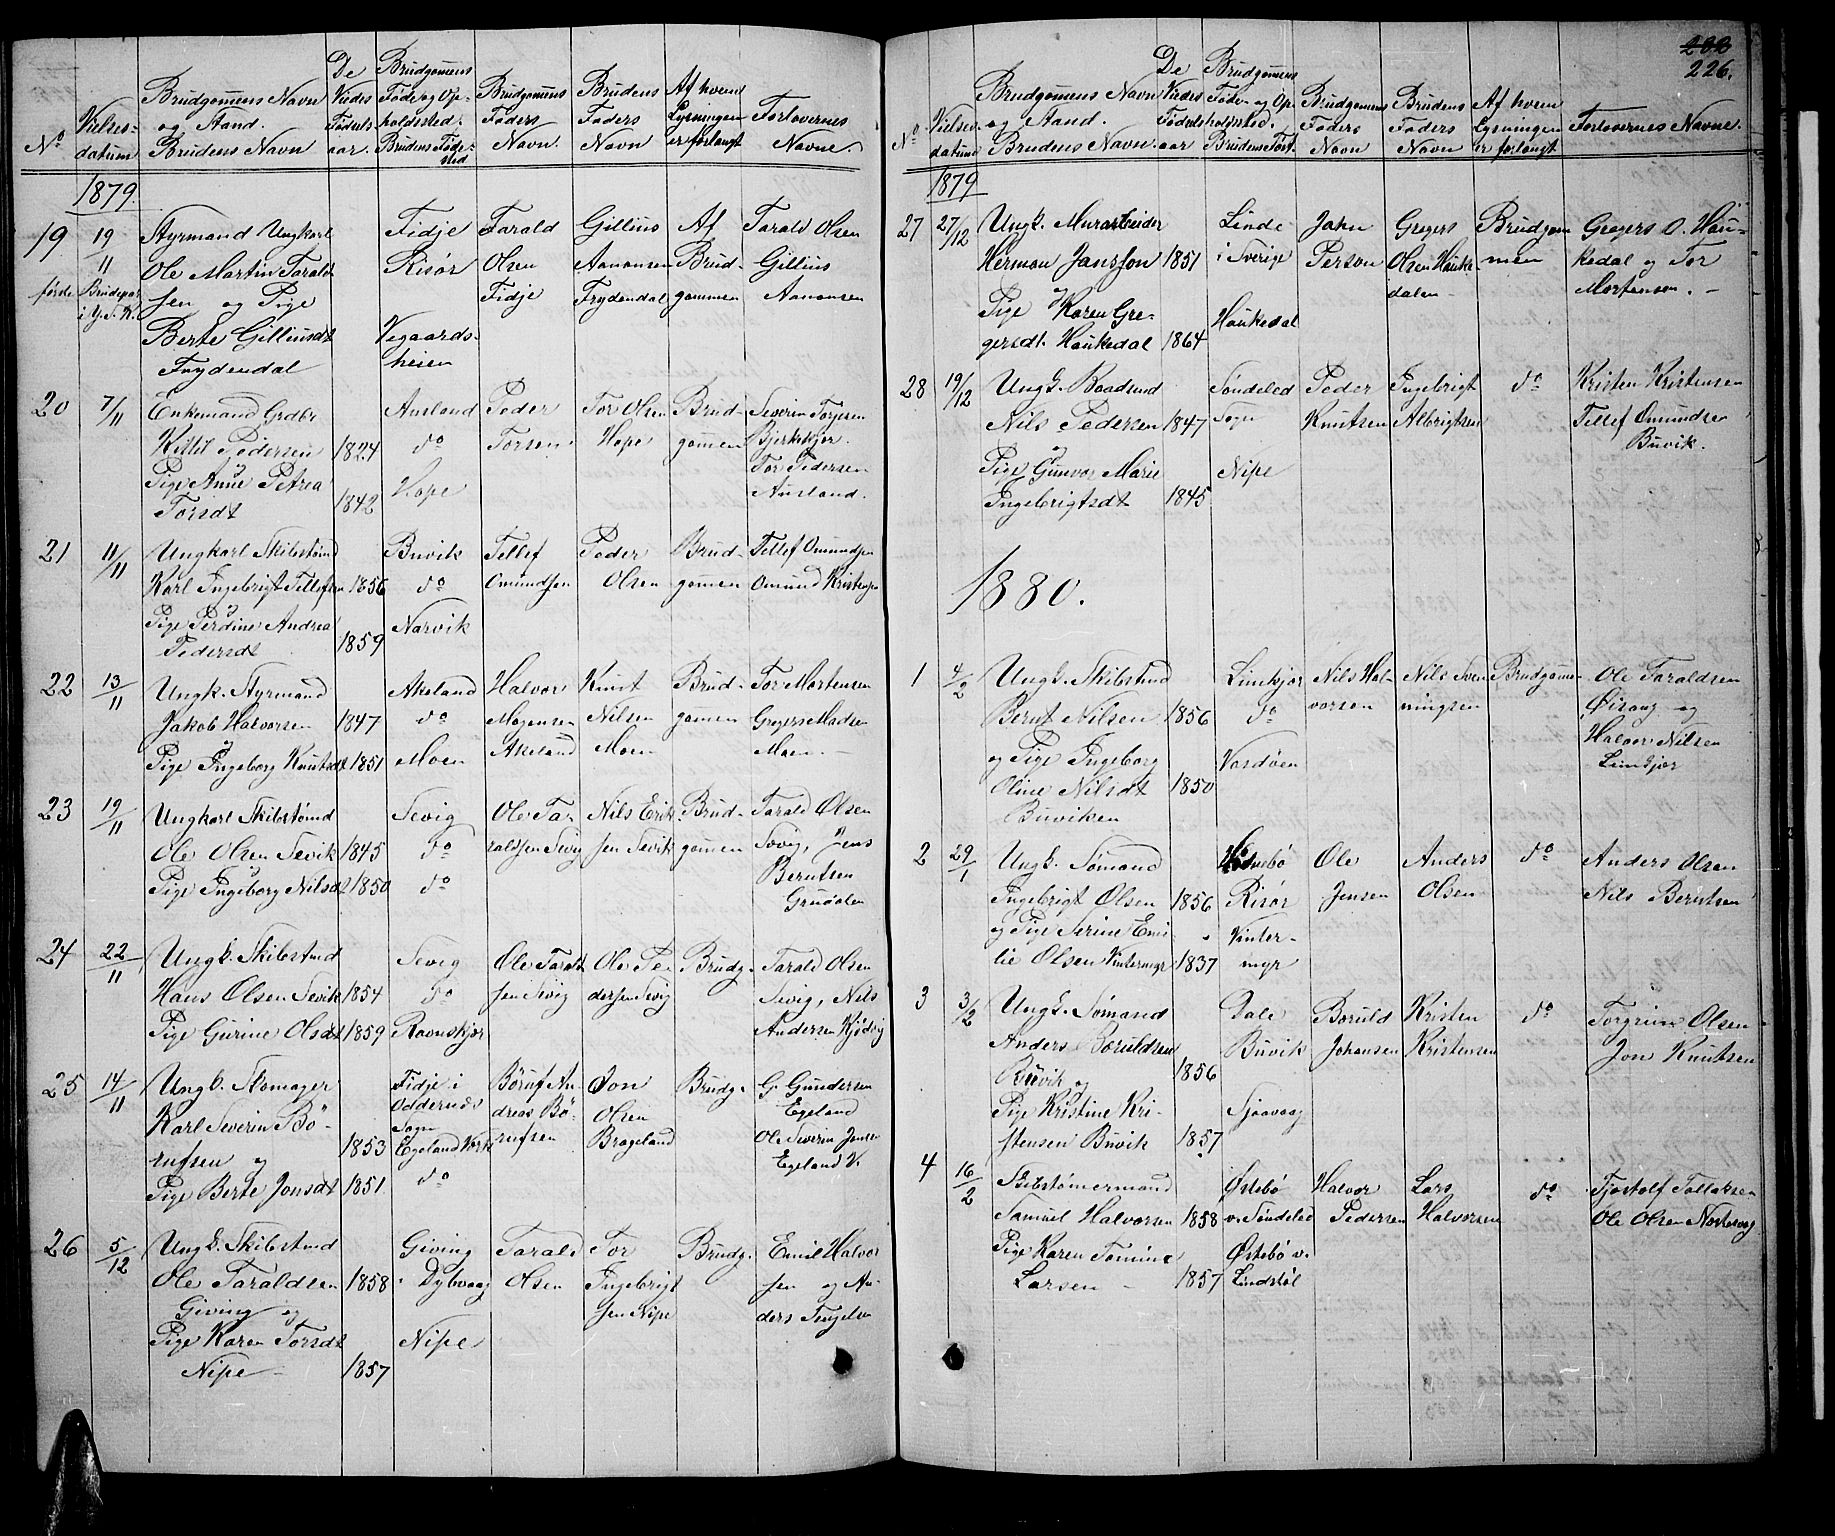 No
Vielses-
datum
Brudgomens Navn
og Stand.
Brudens Navn
De
Viedes
Fødsels-
aar.
Brudgomens
Føde og Op-
holdssted.
Brudens Føde-
sted
Brudgomens
Faders
Navn.
Brudens
Faders
Navn
Af hvem
Lysningen
er forlangt
Forlovernes
Navne
1879.
19
19/11
første Brudepar
i
Styrmand Ungkarl
Ole Martin Tarald-
sen og Pige
Berte Gilliusdt
Frydendal
Fidje
Risør
Vegaards-
heien
Tarald
Olsen
Fidje
Gillius
Aanonsen
Frydendal
Af
Brud-
gommen
Tarald Olsen
Gillius
Aanonsen
20
7/11
Enkemand Grdbr
Kittil Pedersen
Pige Anne Petrea
Torsdt
1824
1842
Ausland
do
Hope
Peder
Torsen
Tor Olsen
Hope
Brud-
gommen
Severin Torjesen
Bjerkskjor.
Tor Pedersen
Ausland.
21
11/11
Ungkarl Skibstømd
Karl Ingebrigt Tellefsen
Pige Perdine Andrea
Pedersdt
1856
1859
Buvik
do
Narvik
Tellef
Omundsen
Peder
Olsen
Brud-
gomen
Tellef Omundsen
Omund Kristensen
22
13/11
Ungk. Styrmand
Jakob Halvorsen
og
Pige Ingeborg Knutsdt
1847
1851
Akeland
do
Moen
Halvor
Mogensen
Akeland
Knut
Nilsen
Moen
Brud-
gomen
Tor Mortensen
Gregers Madsen
Moen.
23
19/11
Ungkarl Skibstømd
Ole Olsen Sevik
Pige Ingeborg Nilsdt
1845
1850
Sevig
do
do
Ole Ta-
raldsen Sevig
Nils Erik-
sen Sevik
Brud-
gomen
Tarald Olsen
Sevig, Jens
Berntsen
24
22/11
Ungk. Skibstmd
Hans Olsen Sevik
Pige Gurine Olsdt
1854
1859
Sevig
do
Ravnskjær
Ole Tarald-
sen Sevig
Ole Pe-
dersen Sevig
Brudg.
Tarald Olsen
Sevig, Nils
Andersen
25
14/11
Ungk. Skomager
Karl Severin Bö-
rufsen og
Pige Berte Jonsdt
1853
1851
Fidje i
Oddernes
Sogn
Egeland Værk
do
Böruf An-
dreas Bö-
rufsen
Jon
Olsen
Brageland
Brudg.
G. Gundersen
Egeland
Ole Severin Jensen
Egeland V.
26
5/12
Ungk. Skibstmd
Ole Taraldsen
Giving og
Pige Karen Torsdt
Nipe
1858
1857
Giving
Dybvaag
Nipe
Tarald
Olsen
Tor
Ingebrigt-
sen Nipe
Brudg.
Emil Halvor-
sen og An-
ders
288
226.
No
Vielses-
datum
Brudgomens Navn
og Stand.
Brudens Navn.
De
Viedes
Fødsels
aar
Brudgomens
Føde- og Op-
holdssted.
Brudens Føst.
Brudgomens
Faders
Navn
Brudens
Faders
Navn
Af hvem
Lysningen
er forlangt
Forlovernes Navne.
1879
27
27/12
Ungk. Murarbeider
Herman Jansson
og
Pige Karen Gre-
gersdt. Haukedal
1851
1864
Linde
i Sverige
Haukedal
John
Person
Gregers
Olsen Hauke-
dalen
Brudgom-
men
Gregers O. Hau-
kedal og Tor
Mortensen.
28
19/12
Ungk. Baadsmd
Nils Pedersen
og
Pige Gunvor Marie
Ingebrigtsdt
1847
1845
Søndeled
Sogn
Nipe
Peder
Knutsen
Ingebrigt
Albrigtsen
do
Kristen Kristensen
Tellef Omundsen
Buvik.
1880.
1
4/2
Ungk. Skibstmd
Bernt Nilsen
og Pige Ingeborg
Oline Nilsdt
Buviken
1856
1850
Limkjær
do
Vardøen
Nils Hal-
vorsen
Nils Sven-
ningsen
Brudgomen
Ole Taraldsen
Øisang og
Halvor Nilsen
Limkjær
2
29/1
Ungk. Sømand
Ingebrigt Olsen
og Pige Serine Emi-
lie Olsen Vintermyr
1856
1837
Risør
Vinter-
myr
Ole
Jensen
Anders
Olsen
do
Anders Olsen
Nils Berntsen
3
3/2
Ungk. Sømand
Anders Boruldsen
Buvik og
Pige Kristine Kri-
stensen Buvik
1856
1857
Dale
Buvik
Sjaavaag
Boruld
Johansen
Kristen
Kristensen
do
Torgrim Olsen
Jon Knutsen
4
16/2
Skibstømermand
Samuel Halvorsen
Pige Karen Tomine
Larsen
1858
1857
Østebø
v. Søndeled
Østebø v.
Lindstøl
Halvor
Pedersen
Lars
Halvorsen
do
Tjostolf Tallaksen
Ole Olsen